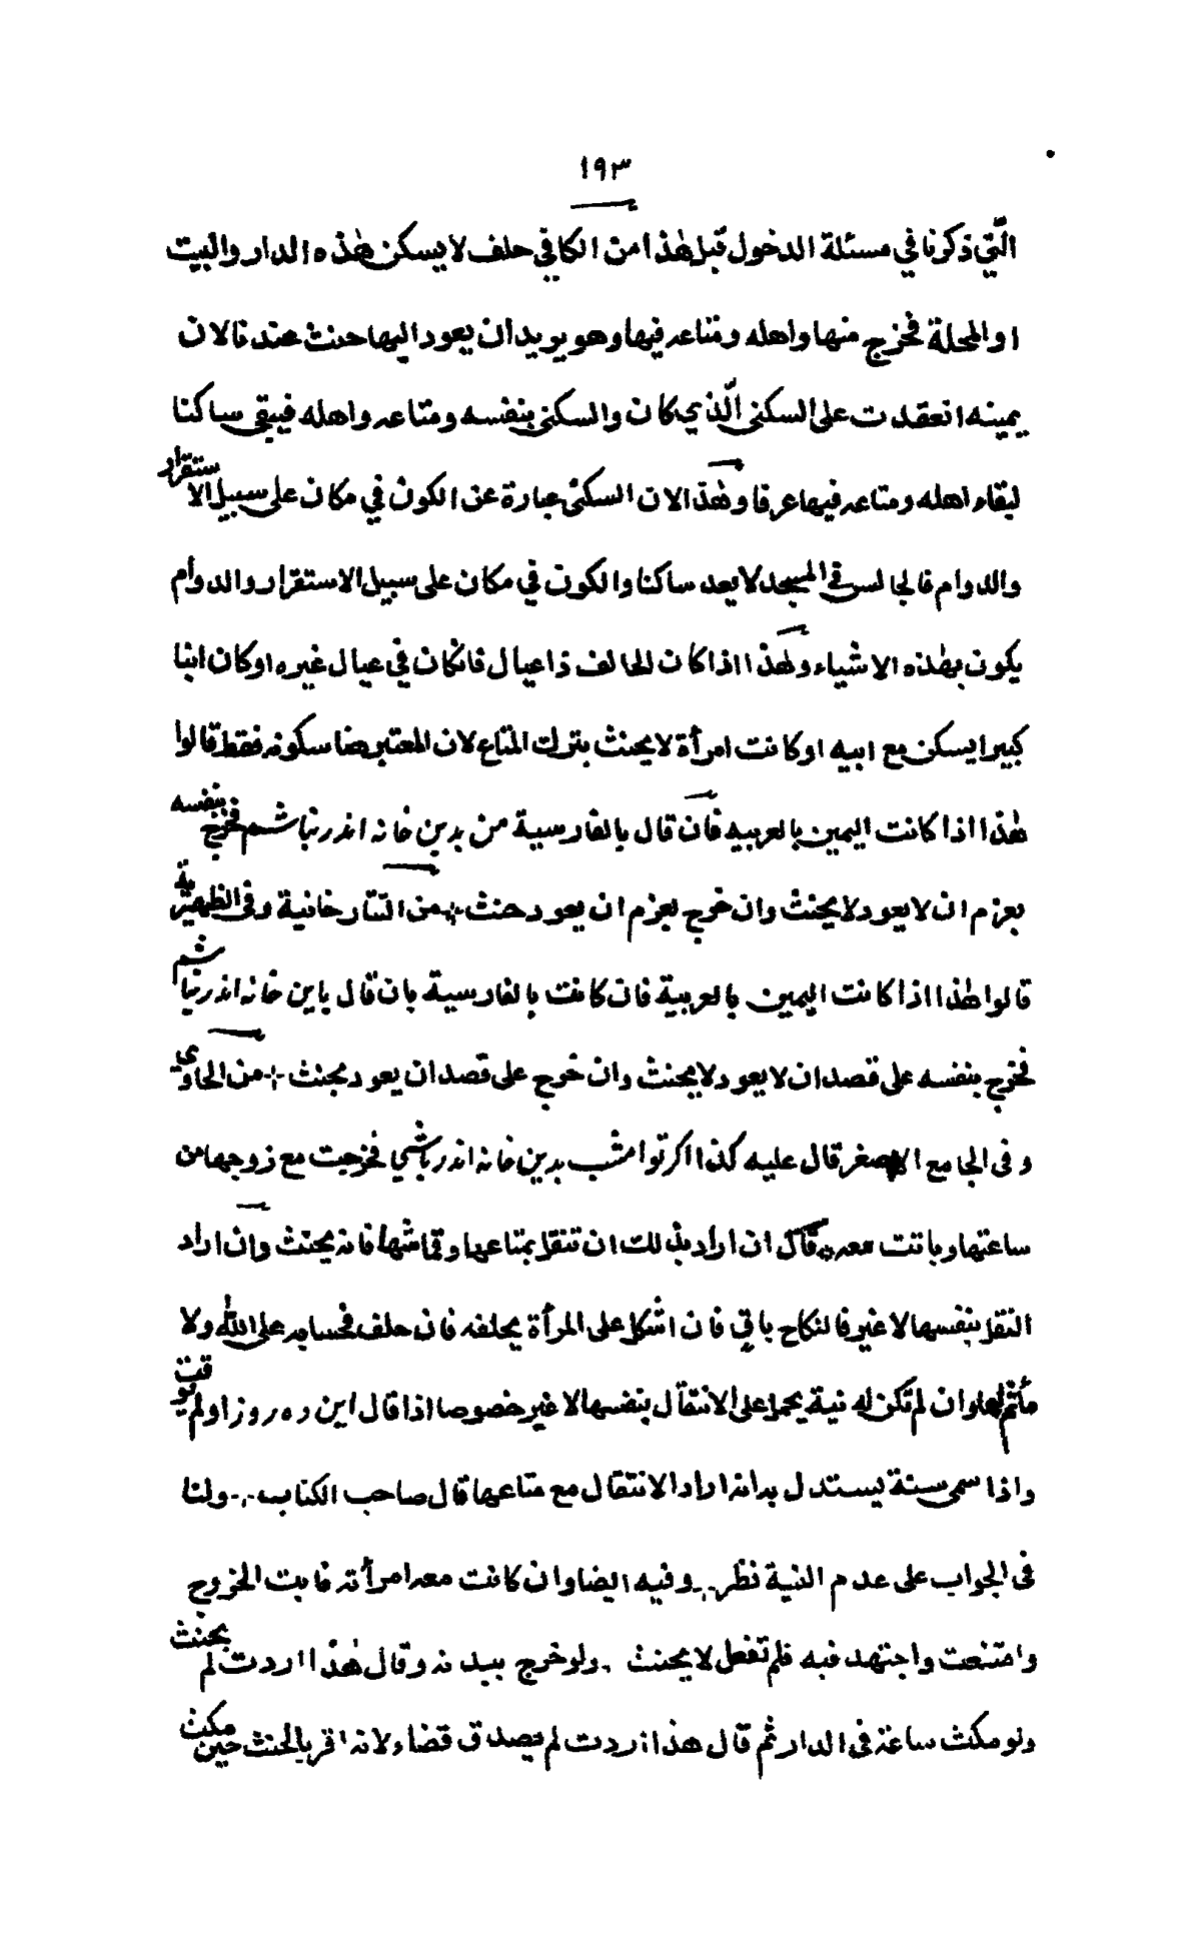 ١٩٣
الّتي ذكرنا في مسئلة الدخول قبل هٰذا من الكافي حلف لا يسكن هٰذه الدار والبيت
او المحلة فخرج منها واهله ومتاعه فيها وهو يريد ان يعود اليها حنث عندنا لان
يمينه انعقدت على السكنى الّذي كان والسكنى بنفسه ومتاعه واهله فيبقى ساكنا
لبقاء اهله ومتاعه فيها عرفا وهٰذا لان السكنى عبارة عن الكون في مكان على سبيل الاستقرار
والدوام فالجالس في المسجد لا يعد ساكنا والكون في مكان على سبيل الاستقرار والدوام
يكون بهٰذه الاشياء ولهٰذا اذا كان الحالف ذا عيال فانكان في عيال غيره او كان ابنا
كبيرا يسكن مع ابيه او كانت امرأة لا يحنث بترك المتاع لان المعتبر هنا سكونه فقط قالوا
هٰذا اذا كانت اليمين بالعربيه فان قال بالفارسية من بدين خانه اندر نباشم فخرج بنفسه
بعزم ان لا يعود لا يحنث وان خرج بعزم ان يعود حنث من التتارخانية وفى الظهيرية
قالوا هٰذا اذا كانت اليمين بالعربية فان كانت بالفارسية بان قال باين خانه اندر نباشم
فخرج بنفسه على قصد ان لا يعود لا يحنث وان خرج على قصد ان يعود يحنث من الحاوي
وفى الجامع الاصغر قال عليه كذا اكر توا مشب بدين خانه اندر باشي فخرجت مع زوجها من
ساعتها وباتت معه قال ان اراد بذلك ان تنقل بمتاعها وقماشها فانه يحنث وان اراد
النقل بنفسها لا غير فالنكاح باقي فان اشكل على المرأة يحلفه فان حلف فحسابه على اللّٰه ولا
مأثم لها وان لم تكن له نية يحمل على الانتقال بنفسها لا غير خصوصا اذا قال اين ده روز او لم يوقت
واذا سمى سنة يستدل به انه اراد الانتقال مع متاعها قال صاحب الكتاب ولنا
فى الجواب على عدم النية نظر وفيه ايضا وان كانت معه امرأته فابت الخروج
وامتنعت واجتهد فيه فلم تفعل لا يحنث ولو خرج ببدنه وقال هٰذا اردت لم يحنث
ولو مكث ساعة فى الدار ثم قال هذا اردت لم يصدق قضاء لانه اقر بالحنث حين مكث